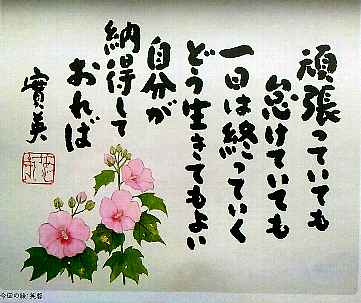 頑張っていても
怠けていても
一日は終っていく
どう生きてもよい
自分が
納得して
おれば
實美
今回の絵:芙蓉